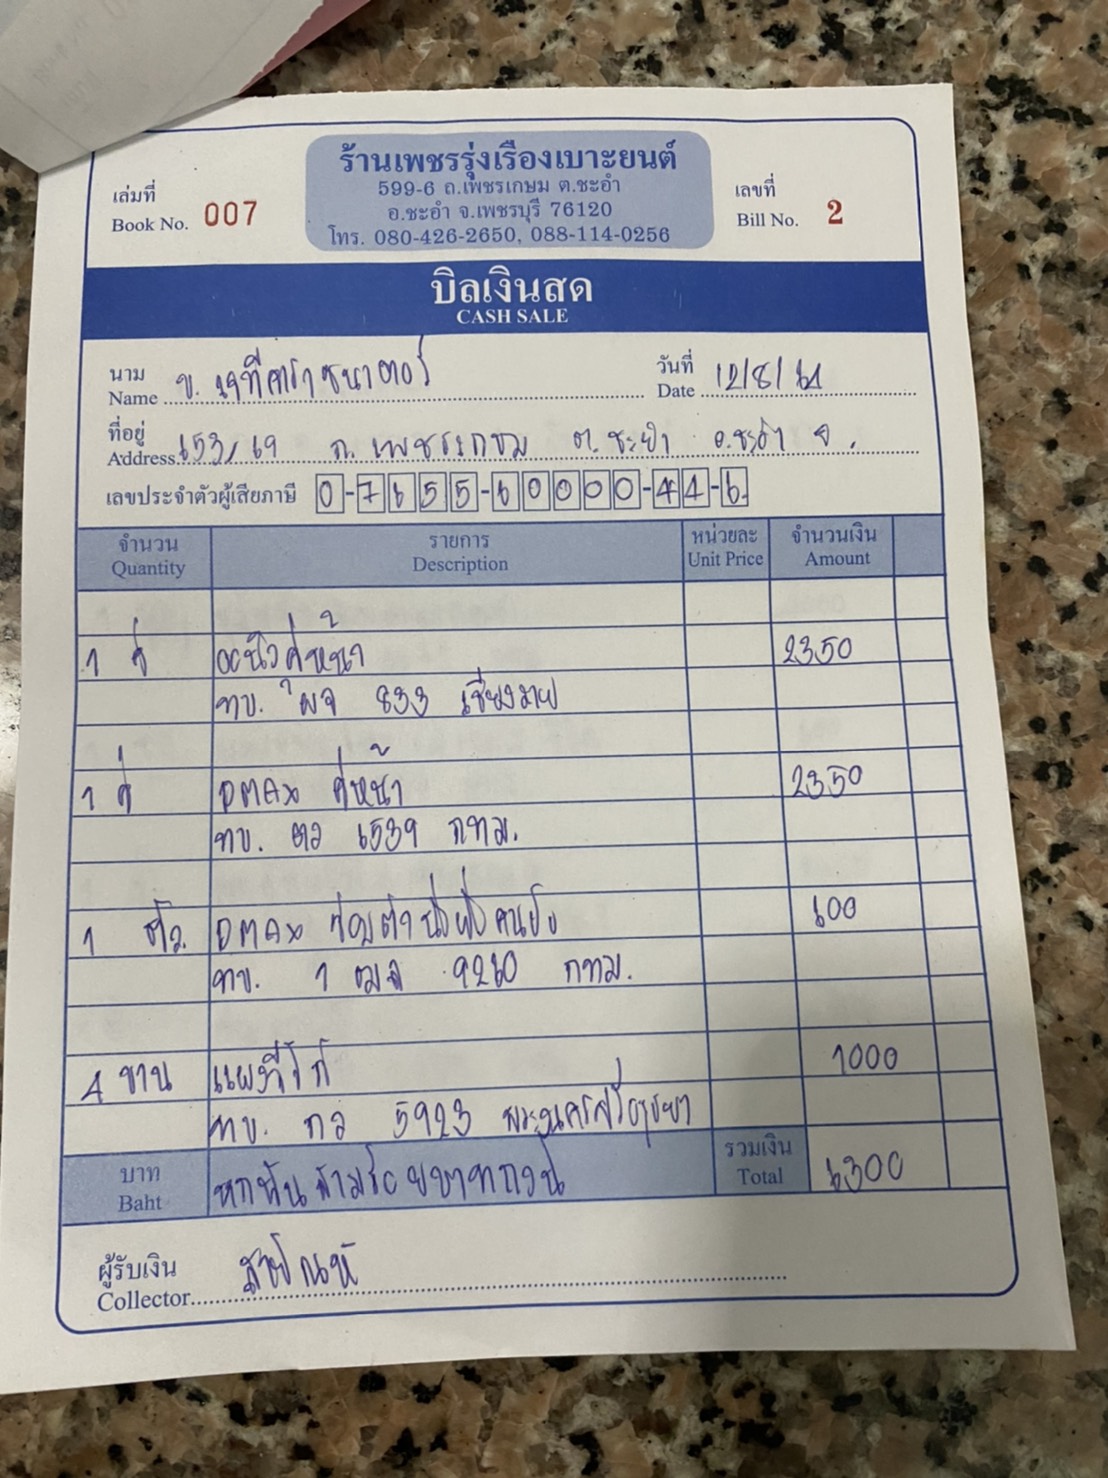 ร้านเพชรรุ่งเรืองเบาะยนต์
599-6 ถ.เพชรเกษม ต.ชะอำ
อ.ชะอำ จ.เพชรบุรี 76120
โทร. 080-426-2650, 088-114-0256
เล่มที่
Book No. 007
เลขที่
Bill No. 2
บิลเงินสด
CASH SALE
นาม
Name
วันที่
Date 12/8/61
ที่อยู่
Address 653/69 ถ. เพชรเกษม ต. ชะอำ อ.ชะอำ จ.
เลขประจำตัวผู้เสียภาษี 0-7655-60000-44-6
จำนวน รายการ หน่วยละ จำนวนเงิน
Quantity Description Unit Price Amount
1 คู่ คู่หน้า 2350
ทข. ผจ 833 เชียงราย
1 คู่ DMAX คู่หน้า 2350
ทข. ตว 6539 กทม.
1 ตัว DMAX 600
ทข. 1 ฒฉ 9260 กทม.
4 บาน 1000
ทข. กว 5923 พระนครศรีอยุธยา
บาท หกพันสามร้อยบาทถ้วน รวมเงิน 6300
Baht Total
ผู้รับเงิน
Collector